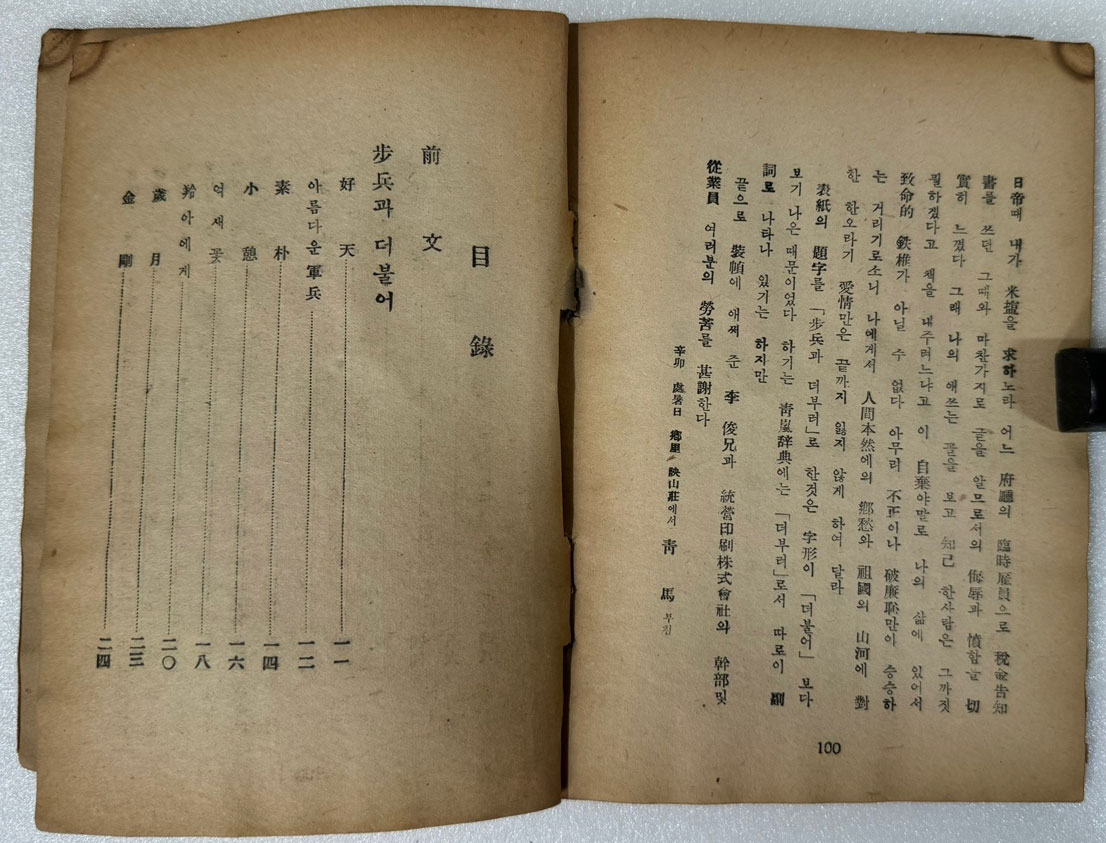 日帝때 내가 米塩을 求하노라 어느 府廳의 臨時雇員으로 稅金告知
書를 쓰던 그때와 마찬가지로 글을 앎므로서의 侮辱과 憤함을 切
實히 느꼈다 그래 나의 애쓰는 꼴을 보고 知己 한사람은 그까짓
필하겠다고 책을 내주려느냐고 이 自棄야말로 나의 삶에 있어서
致命的 鉄椎가 아닐 수 없다 아무리 不正이나 破廉恥만이 승승하
는 거리기로소니 나에게서 人間本然에의 鄕愁와 祖國의 山河에 對
한 한오라기 愛情만은 끝까지 잃지 않게 하여 달라
表紙의 題字를 「步兵과 더부러」로 한것은 字形이 「더불어」 보다
보기 나은 때문이었다 하기는 靑嵐辞典에는 「더부러」로서 따로이 副
詞로 나타나 있기는 하지만
끝으로 裝幀에 애써 준 李 俊兄과 統營印刷株式會社의 幹部및
從業員 여러분의 勞苦를 甚謝한다
辛卯 處暑日 鄕里 映山莊에서 靑 馬 부침
100
目 錄
前 文
步兵과 더불어
好 天 一一
아름다운 軍兵 一二
素 朴 一四
小 憩 一六
억새꽃 一八
아에게 二〇
歲 月 二三
金 剛 二四